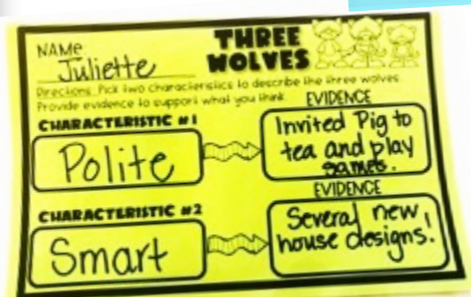 NAME
Juliette
THREE
WOLVES
Directions: Pick two characteristics to describe the three wolves.
Provide evidence to support what you think.
EVIDENCE
CHARACTERISTIC #1
Polite
Invited Pig to
tea and play
games.
EVIDENCE
CHARACTERISTIC #2
Smart
Several new
house designs!